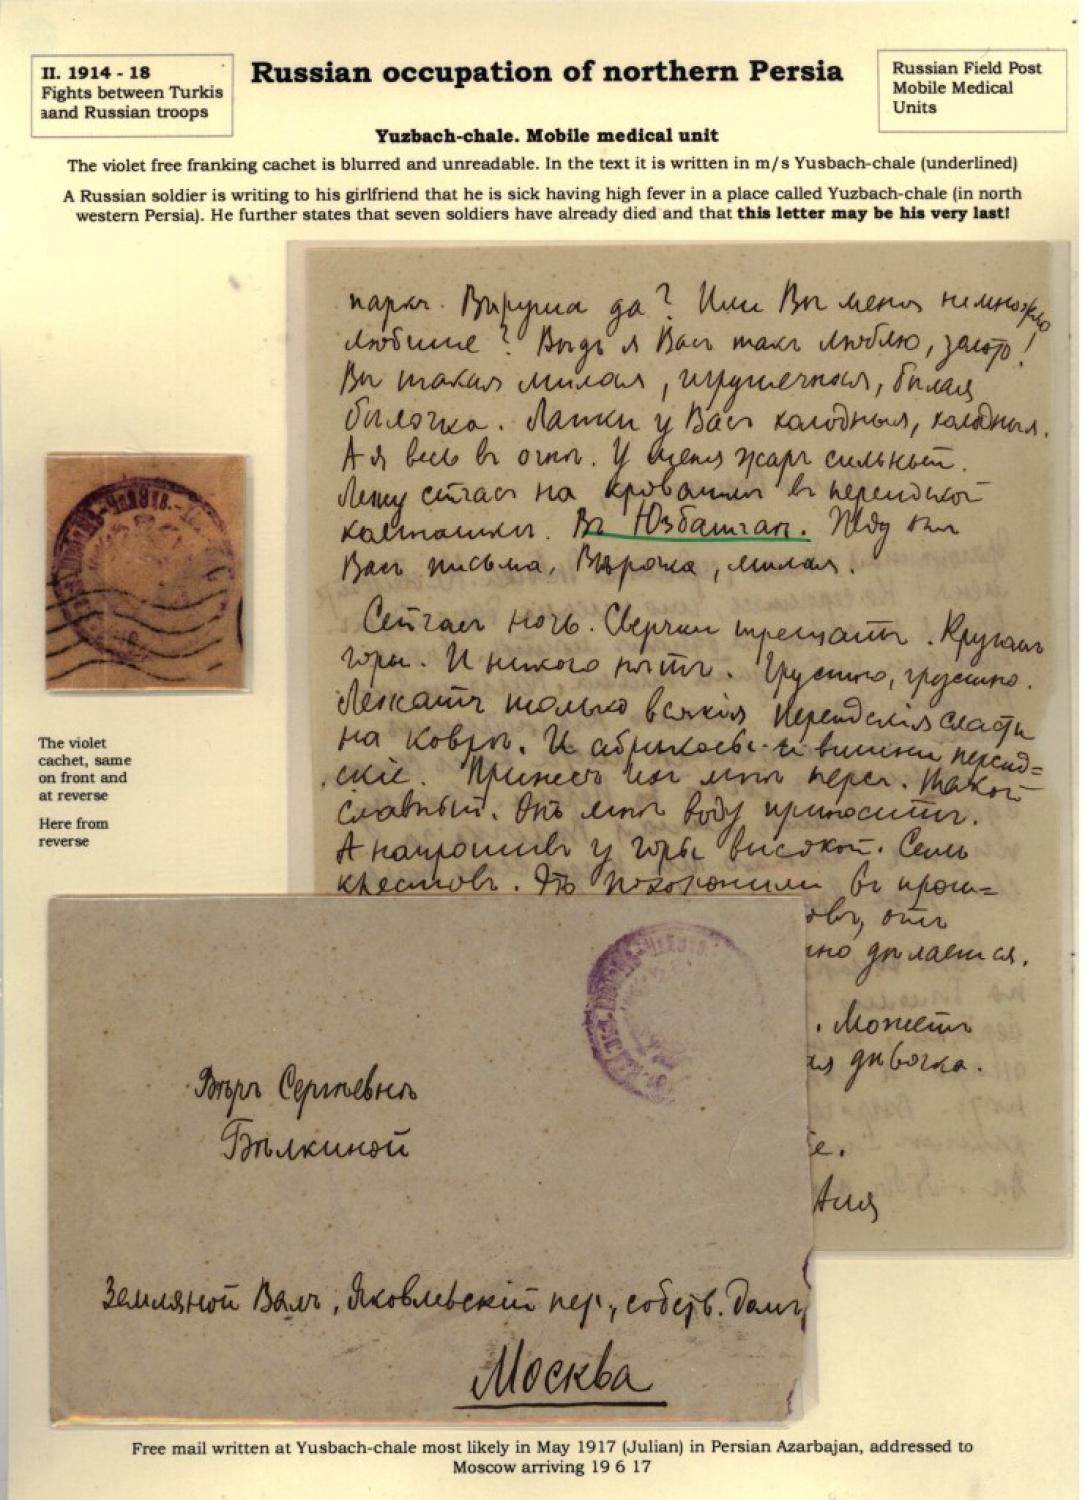 II. 1914 - 18
Fights between Turkis
aand Russian troops
Russian occupation of northern Persia
Russian Field Post
Mobile Medical
Units
Yuzbach-chale. Mobile medical unit
The violet free franking cachet is blurred and unreadable. In the text it is written in m/s Yusbach-chale (underlined)
A Russian soldier is writing to his girlfriend that he is sick having high fever in a place called Yuzbach-chale (in north
western Persia). He further states that seven soldiers have already died and that this letter may be his very last!
паркѣ. Вѣруша да? Или Вы меня немножко
любите? Вѣдь я Васъ такъ люблю,
Вы такая милая, игрушечная, бѣлая
бѣлочка. Лапки у Васъ холодныя, холодныя.
А я весь въ огнѣ. У меня жаръ сильный.
Лежу сейчасъ на кровати въ персидской
Въ Юзбашчаѣ. Жду
Васъ письма, Вѣрочка, милая.
Сейчасъ ночь. Сверчки трещатъ. Кругомъ
горы. И никого нѣтъ. Грустно, грустно.
Лежатъ только всякія персидскія сласти
на коврѣ. И абрикосы и вишни персид=
скіе. Принесъ ихъ мнѣ персъ. Такой
славный. Онъ мнѣ воду приноситъ.
А напротивъ у горы высокой. Семь
крестовъ. Это похоронили въ прош=
отъ
дѣлается.
. Можетъ
дѣвочка.
The violet
cachet, same
on front and
at reverse
Here from
reverse
Вѣрѣ Сергѣевнѣ
Бѣлкиной
Земляной Валъ, Яковлевскій пер., собств. домъ
Москва
Free mail written at Yusbach-chale most likely in May 1917 (Julian) in Persian Azarbajan, addressed to
Moscow arriving 19 6 17